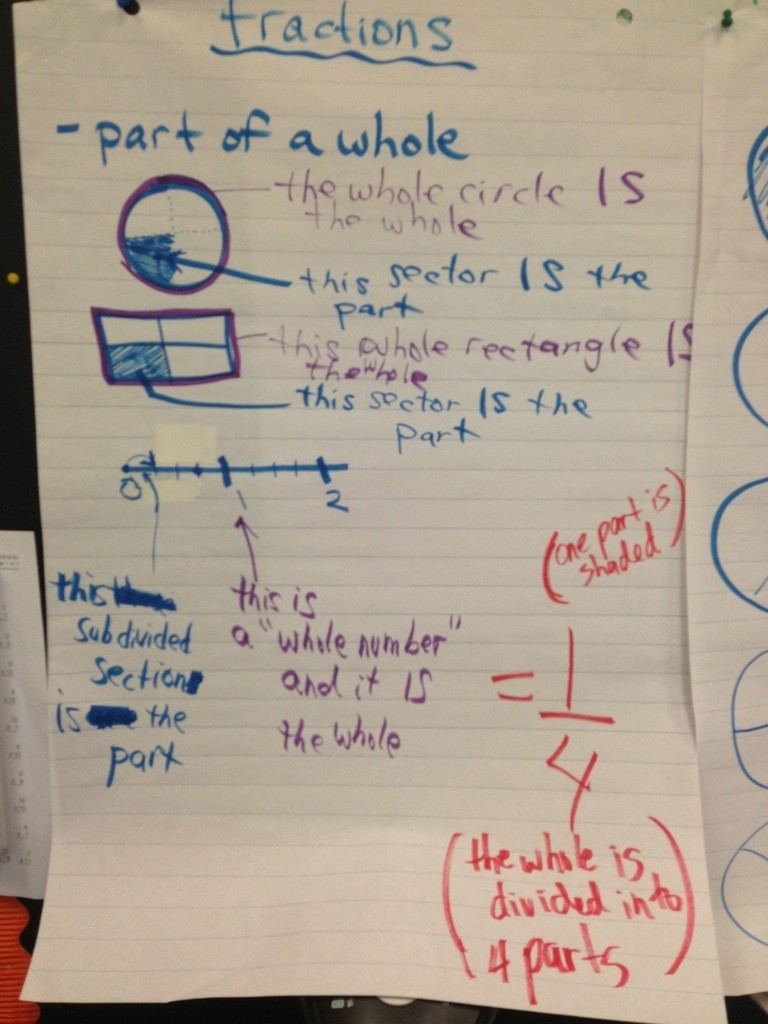 fractions
- part of a whole
the whole circle IS
the whole
this sector IS the
part
this whole rectangle IS
the whole
this sector IS the
part
0 1 2
this
subdivided
section
is the
part
this is
a "whole number"
and it IS
the whole
(one part is
shaded)
= 1
4
(the whole is
divided into
4 parts)